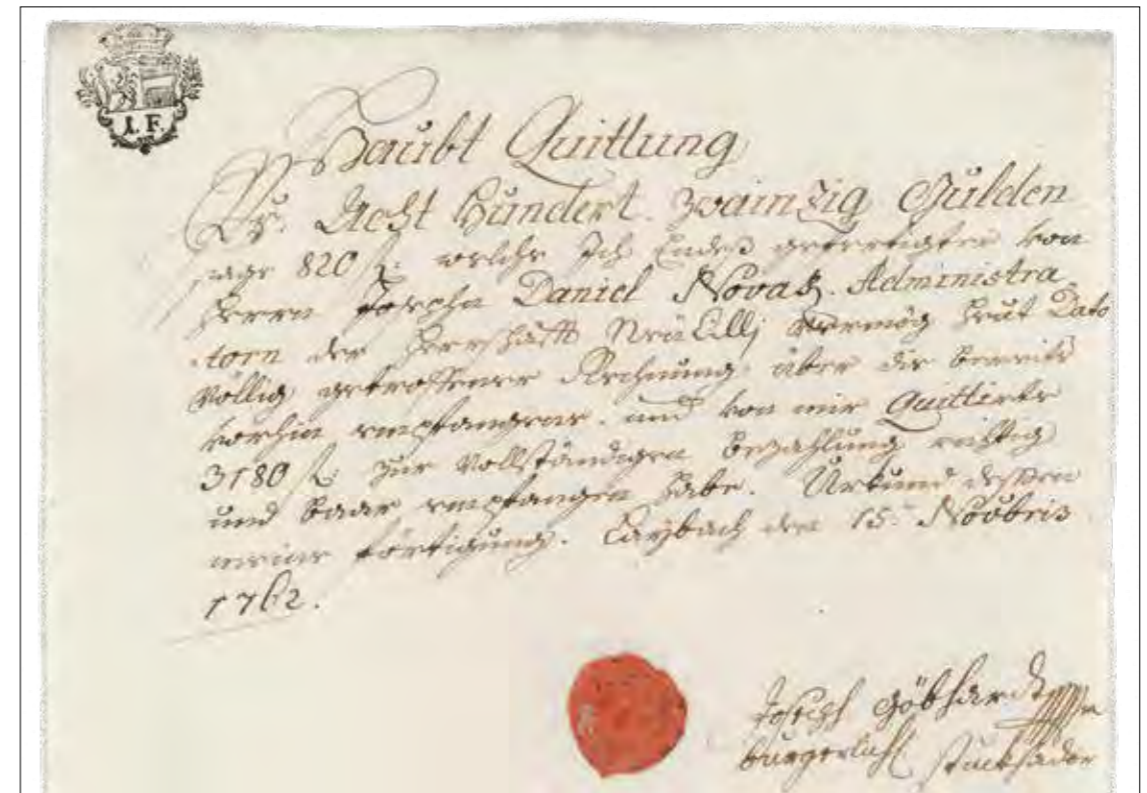 I. F.
Haubt Quittung
Pr. Acht Hundert zwainzig Gulden
sage 820 f: welche Ich Endes gefertigter von
Herrn Joseph Daniel Novak Administra
torn der Herrschafft NeüCillj vermög heut Dato
völlig getroffener Rechnung über die bereits
vorhin empfangene und von mir Quittierte
3180 f zur vollständigen bezahlung richtig
und baar empfangen habe. Urkund dessen
meine förtigung. Laybach den 15: Novbris
1762.
Joseph Göbhardt
burgerlich stuckhador